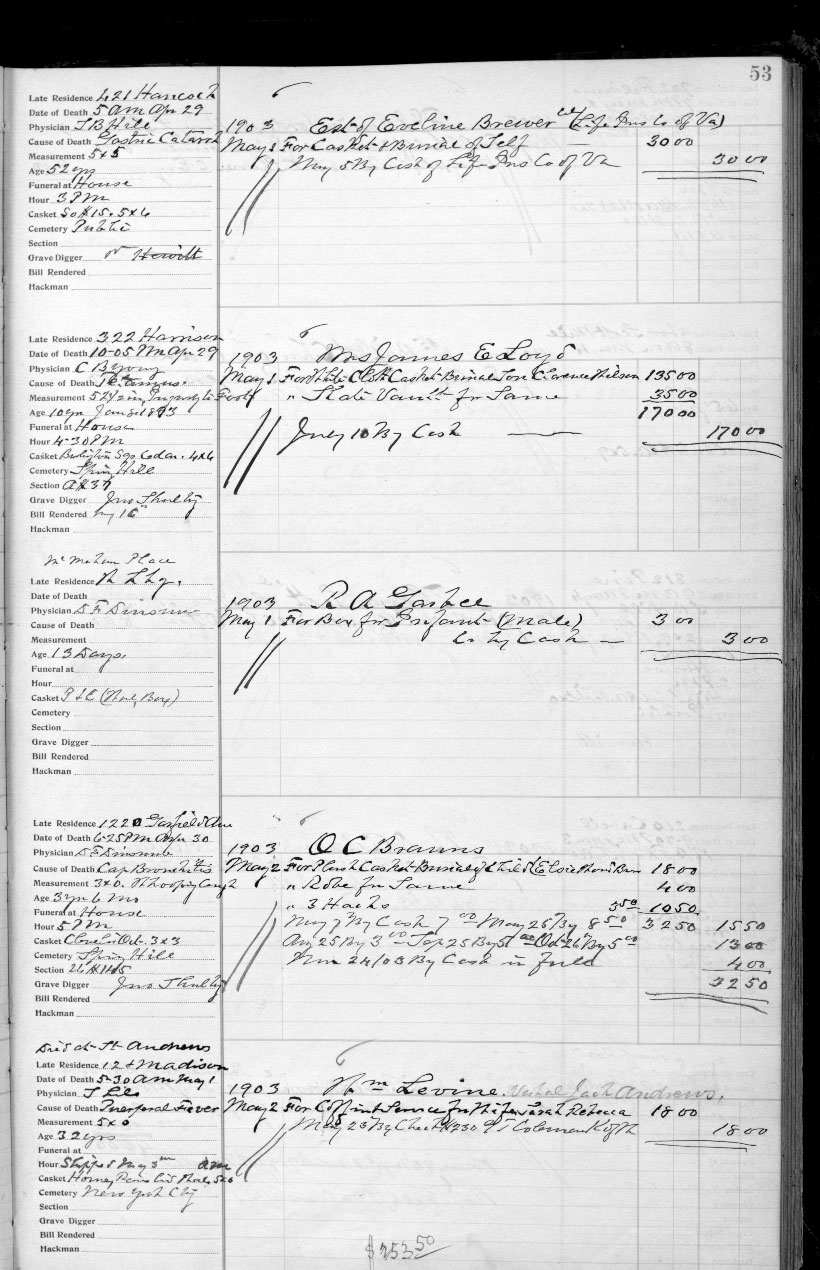 53
Late Residence 421 Hancock
Date of Death 5 am Apr 29
Physician J B Hile
Cause of Death Gastric Catarrh
Measurement 5x5
Age 52 yrs
Funeral at House
Hour 3 PM
Casket So # 15. 5x6
Cemetery Public
Section
Grave Digger Hewitt
Bill Rendered
Hackman
1903 Est of Eveline Brewer (Life Ins Co of Va)
May 1 For Casket & Burial of Self — 30 00
May 5 By Cash of Life Ins Co of Va 30 00
Late Residence 322 Harrison
Date of Death 10-05 PM Apr 29
Physician C B Young
Cause of Death Tetanus.
Measurement 5 2 1/2 in Injury to Foot
Age 10 yrs Jan 8 1893
Funeral at House
Hour 4-30 PM
Casket Burlington Sqr Cedar. 4x6
Cemetery Spring Hill
Section
Grave Digger Jno
Bill Rendered
Hackman
1903 Mrs James E Loyd
May 1 For White Cloth Casket Burial Son Clarence 135 00
" Slate Vault for Same 35 00
170 00
July 10 By Cash — 170 00
Place
Late Residence
Date of Death
Physician D F
Cause of Death
Measurement
Age 13 Days.
Funeral at
Hour
Casket
Cemetery
Section
Grave Digger
Bill Rendered
Hackman
1903 R A
May 1 For Box for Infant (Male) 3 00
Cr by Cash — 3 00
Late Residence 1220 Garfield Ave
Date of Death 6-25 PM Apr 30
Physician D F
Cause of Death Cap Bronchitis
Measurement 3x0. Whooping Cough
Age 3 yrs 6 mo
Funeral at House
Hour 5 PM
Casket Oct. 3x3
Cemetery Spring Hill
Section
Grave Digger Jno
Bill Rendered
Hackman
1903 O C Brauns
May 2 For Plush Casket Burial of Child Elsie 18 00
" Robe for Same 4 00
" 3 Hacks 3 50 10 50
May 7 By Cash 7 00 May 25 By 8 50 32 50 15 50
Aug 25 By 3 00 Sep 25 By 5 00 Oct 26 By 5 00 13 00
Nov 24/03 By Cash in full 4 00
32 50
Died at St Andrews
Late Residence 12 & Madison
Date of Death 5-30 am May 1
Physician J Lee
Cause of Death Puerperal Fever
Measurement 5x0
Age 32 yrs
Funeral at
Hour Shipped May 3 am
Casket
Cemetery New York City
Section
Grave Digger
Bill Rendered
Hackman
1903 Wm Levine Andrews.
May 2 For Coffin & Service for Wife Sarah Rebeca 18 00
May 23 By Check #230 Coleman K of P 18 00
$253 50